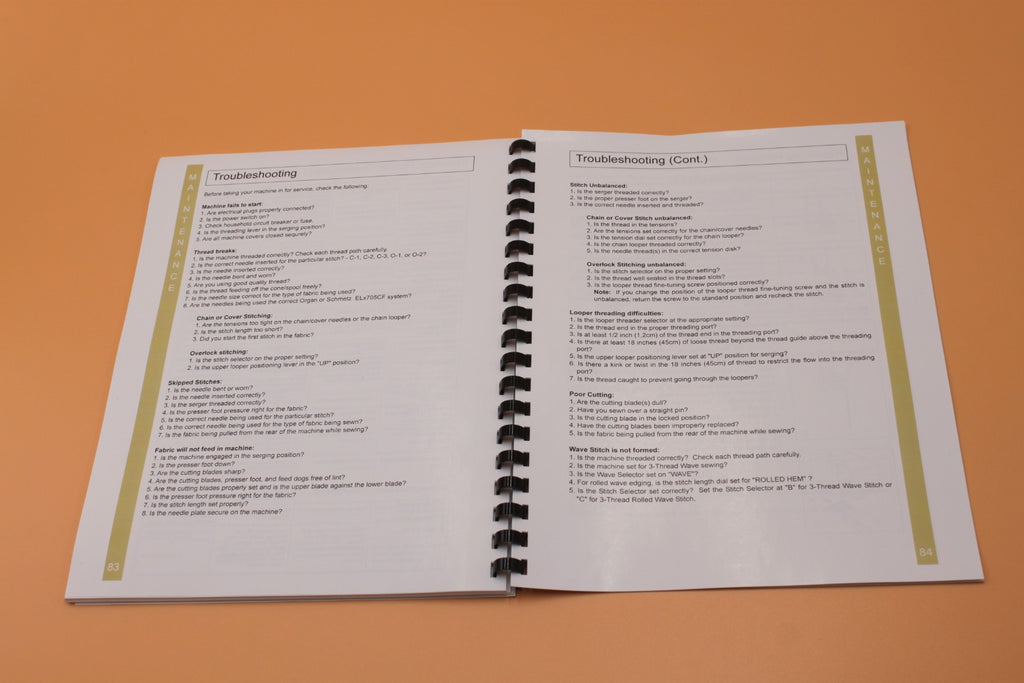 MAINTENANCE
Troubleshooting
Before taking your machine in for service, check the following:
Machine fails to start:
1. Are electrical plugs properly connected?
2. Is the power switch on?
3. Check household circuit breaker or fuse.
4. Is the threading lever in the serging position?
5. Are all machine covers closed sequrely?
Thread breaks:
1. Is the machine threaded correctly? Check each thread path carefully.
2. Is the correct needle inserted for the particular stitch? - C-1, C-2, C-3, O-1, or O-2?
3. Is the needle inserted correctly?
4. Is the needle bent and worn?
5. Are you using good quality thread?
6. Is the thread feeding off the cone/spool freely?
7. Is the needle size correct for the type of fabric being used?
8. Are the needles being used the correct Organ or Schmetz ELx705CF system?
Chain or Cover Stitching:
1. Are the tensions too tight on the chain/cover needles or the chain looper?
2. Is the stitch length too short?
3. Did you start the first stitch in the fabric?
Overlock stitching:
1. Is the stitch selector on the proper setting?
2. Is the upper looper positioning lever in the "UP" position?
Skipped Stitches:
1. Is the needle bent or worn?
2. Is the needle inserted correctly?
3. Is the serger threaded correctly?
4. Is the presser foot pressure right for the fabric?
5. Is the correct needle being used for the particular stitch?
6. Is the correct needle being used for the type of fabric being sewn?
7. Is the fabric being pulled from the rear of the machine while sewing?
Fabric will not feed in machine:
1. Is the machine engaged in the serging position?
2. Is the presser foot down?
3. Are the cutting blades sharp?
4. Are the cutting blades, presser foot, and feed dogs free of lint?
5. Are the cutting blades properly set and is the upper blade against the lower blade?
6. Is the presser foot pressure right for the fabric?
7. Is the stitch length set properly?
8. Is the needle plate secure on the machine?
83
Troubleshooting (Cont.)
Stitch Unbalanced:
1. Is the serger threaded correctly?
2. Is the proper presser foot on the serger?
3. Is the correct needle inserted and threaded?
Chain or Cover Stitch unbalanced:
1. Is the thread in the tensions?
2. Are the tensions set correctly for the chain/cover needles?
3. Is the tension dial set correctly for the chain looper?
4. Is the chain looper threaded correctly?
5. Is the needle thread(s) in the correct tension disk?
Overlock Stitching unbalanced:
1. Is the stitch selector on the proper setting?
2. Is the thread well seated in the thread slots?
3. Is the looper thread fine-tuning screw positioned correctly?
Note: If you change the position of the looper thread fine-tuning screw and the stitch is
unbalanced, return the screw to the standard position and recheck the stitch.
Looper threading difficulties:
1. Is the looper threader selector at the appropriate setting?
2. Is the thread end in the proper threading port?
3. Is at least 1/2 inch (1.2cm) of the thread end in the threading port?
4. Is there at least 18 inches (45cm) of loose thread beyond the thread guide above the threading
port?
5. Is the upper looper positioning lever set at "UP" position for serging?
6. Is there a kink or twist in the 18 inches (45cm) of thread to restrict the flow into the threading
port?
7. Is the thread caught to prevent going through the loopers?
Poor Cutting:
1. Are the cutting blade(s) dull?
2. Have you sewn over a straight pin?
3. Is the cutting blade in the locked position?
4. Have the cutting blades been improperly replaced?
5. Is the fabric being pulled from the rear of the machine while sewing?
Wave Stitch is not formed:
1. Is the machine threaded correctly? Check each thread path carefully.
2. Is the machine set for 3-Thread Wave sewing?
3. Is the Wave Selector set on "WAVE"?
4. For rolled wave edging, is the stitch length dial set for "ROLLED HEM" ?
5. Is the Stitch Selector set correctly? Set the Stitch Selector at "B" for 3-Thread Wave Stitch or
"C" for 3-Thread Rolled Wave Stitch.
MAINTENANCE
84